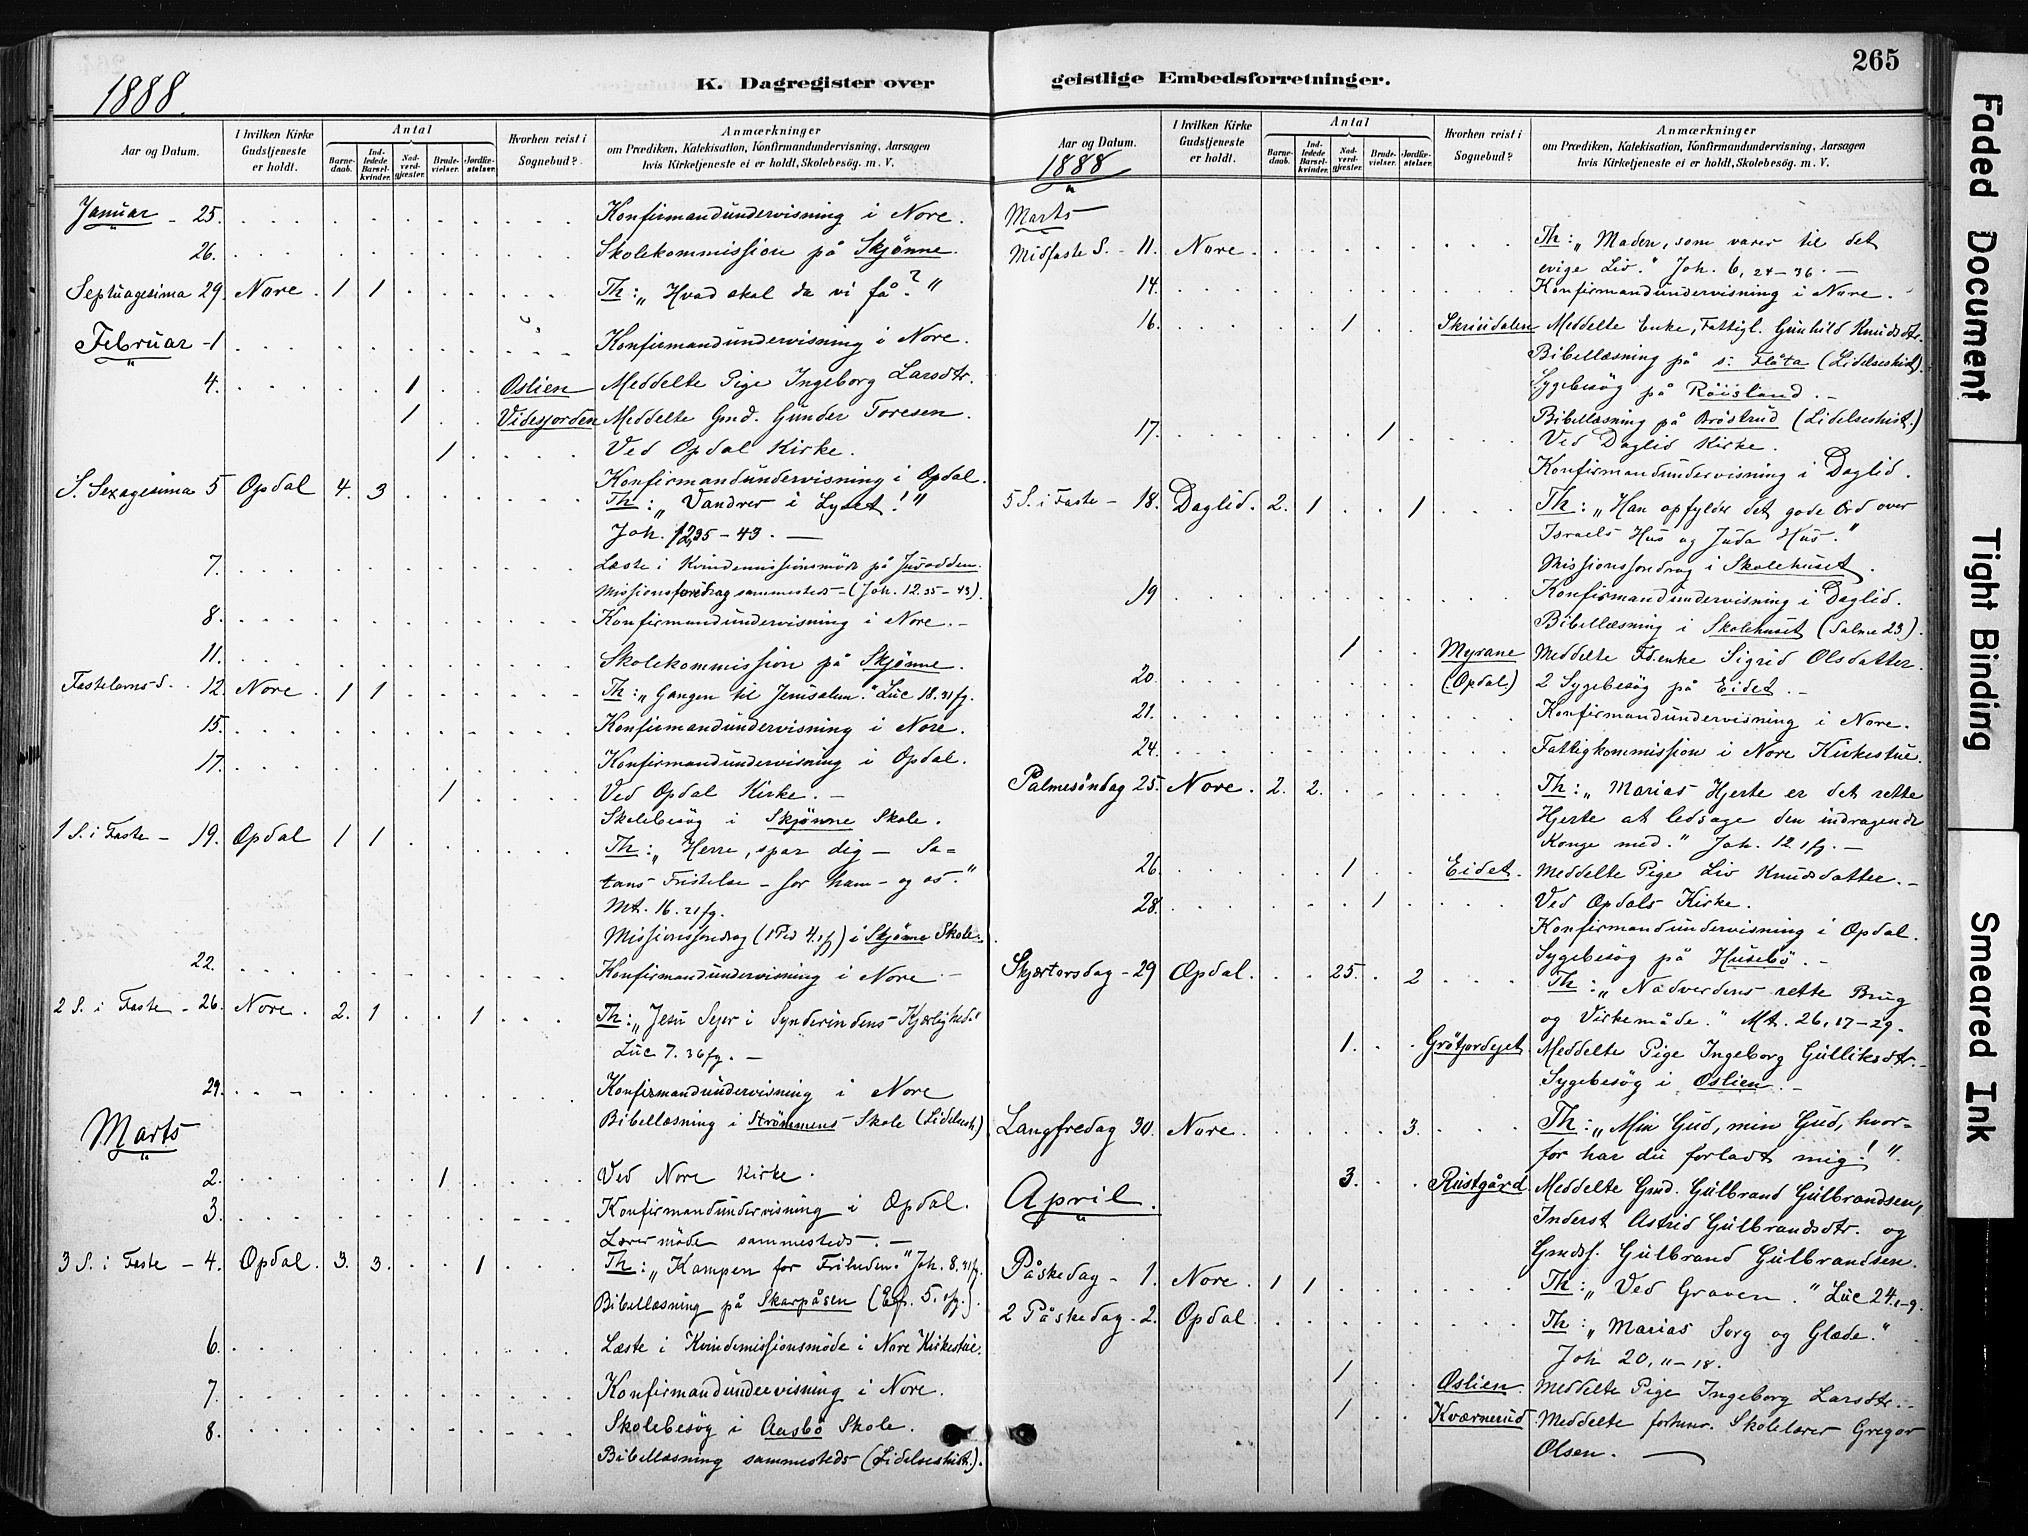 1888.
K. Dagregister over
Aar og Datum.
I hvilken Kirke Gudstjeneste er holdt.
Antal
Barnedaab.
Indledede Barselkvinder.
Nadverdgjæster.
Brudevielser.
Jordfæstelser.
Hvorhen reist i Sognebud?
Anmærkninger
om Prædiken, Katekisation, Konfirmandundervisning, Aarsagen
hvis Kirketjeneste ei er holdt, Skolebesøg. m. V.
Januar - 25. Konfirmandundervisning i Nore.
26. Skolekommission på Skjønne.
Septuagesima 29 Nore. 1 1 Th: „Hvad skal da vi få?"
Februar - 1 Konfirmandundervisning i Nore.
4. 1 Oslien Meddelte Pige Ingeborg Larsdtr.
1 Videsjorden Meddelte Gmd. Gunder Toresen.
1 Ved Opdal Kirke.
Konfirmandundervisning i Opdal.
S. Sexagesima 5 Opdal 4. 3 Th: „Vandrer i Lyset!"
Joh. 12,35-43. —
7. Læste i Kvindemissionsmöde på Juvodden.
Missionsforedrag sammesteds - (Joh. 12.35-43).
8. Konfirmandundervisning i Nore. -
11. Skolekommission på Skjønne.
Fastelavns S. 12. Nore. 1 1 Th: „Gangen til Jerusalem." Luc 18.31fg.
15. Konfirmandundervisning i Nore.
17. Konfirmandundervisning i Opdal.
1 Ved Opdal Kirke. -
Skolebesøg i Skjønne Skole.
1 S. i Faste - 19. Opdal 1 1 Th: „Herre, spar dig - Sa-
tans Fristelse - for ham - og os."
Mt. 16.21fg.
Missionsforedrag (1 Pet 4.1f) i Skjønne Skole.
22. Konfirmandundervisning i Nore -
2 S. i Faste - 26. Nore. 2. 1 1 Th: „Jesu Sejer i Synderindens Kjærlighed."
Luc 7.36fg. -
29. Konfirmandundervisning i Nore
Bibellæsning i Strømmens Skole (Lidelsesh.)
Marts
2. 1 Ved Nore Kirke.
3. Konfirmandundervisning i Opdal.
Lærermöde sammesteds. -
3 S. i Faste - 4. Opdal. 3. 3. 1 Th: „Kampen for Friheden." Joh. 8.31fg.
Bibellæsning på Skarpåsen (Ef. 5.1fg.).
6. Læste i Kvindemissionsmöde i Nore Kirkestue.
7. Konfirmandundervisning i Nore.
8. Skolebesøg i Aasbö Skole.
Bibellæsning sammesteds (Lidelseshist.).
geistlige Embedsforretninger.
265
Aar og Datum.
1888
I hvilken Kirke Gudstjeneste er holdt.
Antal
Barnedaab.
Indledede Barselkvinder.
Nadverdgjæster.
Brudevielser.
Jordfæstelser.
Hvorhen reist i Sognebud?
Anmærkninger
om Prædiken, Katekisation, Konfirmandundervisning, Aarsagen
hvis Kirketjeneste ei er holdt, Skolebesøg. m. V.
Marts
Midfaste S. - 11. Nore. Th: „Maden, som varer til det
evige Liv." Joh. 6, 24-36. -
14. Konfirmandundervisning i Nore.
16. 1 Skrindalen Meddelte Enke, Fattigl. Gunhild Knudsdtr.
Bibellæsning på s. Flåta (Lidelseshist.).
Sygebesøg på Röisland. -
Bibellæsning på Bröstrud (Lidelseshist.)
17. 1 Ved Daglid Kirke.
Konfirmandundervisning i Daglid.
5 S. i Faste - 18. Daglid. 2. 1 1 Th: „Han opfylder det gode Ord over
Israels Hus og Juda Hus."
Missionsforedrag i Skolehuset.
19 Konfirmandundervisning i Daglid.
Bibellæsning i Skolehuset (Salme 23).
1 Myrane Meddelte Fdenke Sigrid Olsdatter.
20. (Opdal.) 2 Sygebesøg på Eidet. -
21. Konfirmandundervisning i Nore.
24. Fattigkommission i Nore Kirkestue.
Palmesöndag 25. Nore. 2. 2. Th: „Marias Hjerte er det rette
Hjerte at ledsage den indragende
Konge med." Joh. 12.1fg. -
26. 1 Eidet. Meddelte Pige Liv Knudsdatter. -
28. 1 Ved Opdals Kirke.
Konfirmandundervisning i Opdal.
Sygebesøg på Husebö. -
Skjærtorsdag - 29 Opdal. 25. 2 Th: „Nadverdens rette Brug
og Virkemåde." Mt. 26, 17-29.
1. Grötjordejet Meddelte Pige Ingeborg Gulliksdtr. -
Sygebesøg i Oslien. -
Langfredag 30. Nore. 3. Th: „Min Gud, min Gud, hvor-
for har du forladt mig!".
April.
3. Rustgård. Meddelte Gmd. Gulbrand Gulbrandsen,
Inderst Astrid Gulbrandsdtr. og
Gmdsf. Gulbrand Gulbrandsen.
Påskedag - 1. Nore. 1 1 Th: „Ved Graven." Luc 24.1-9.
2 Påskedag - 2. Opdal Th: „Marias Sorg og Glæde."
Joh 20, 11-18.
1 Oslien. Meddelte Pige Ingeborg Larsdtr. -
1 Kværnerud. Meddelte forhenv. Skolelærer Gregor
Olsen. —
Faded Document
Tight Binding
Smeared Ink